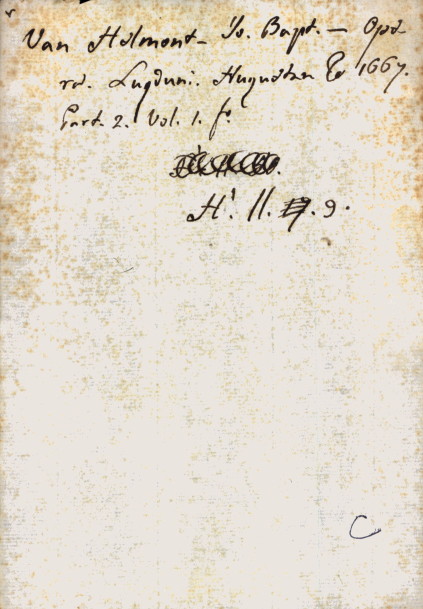 Van Helmont - Jo. Bapt. — Ope
ra. Lugduni. Huguetan &c 1667.
Part. 2. Vol. 1. f.
H. 11. 9.
C